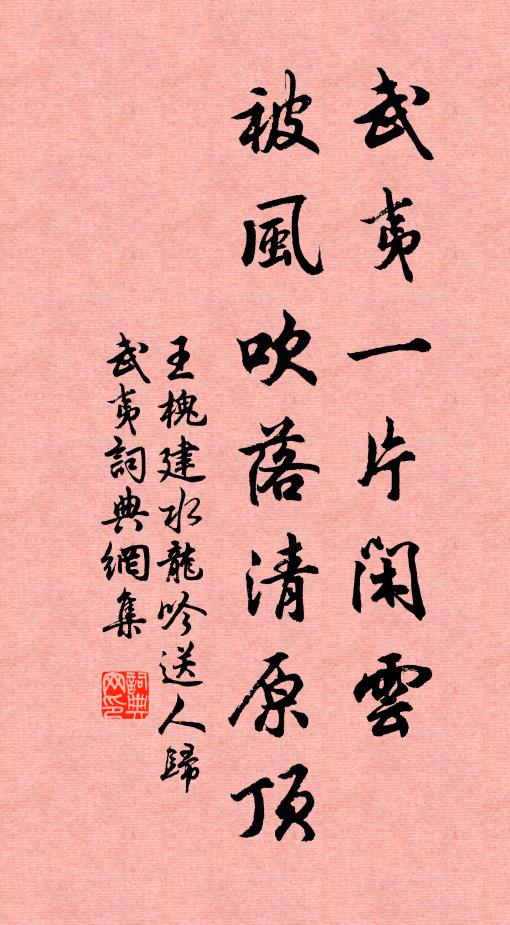 武夷一片閑雲
被風吹落清原頂
王槐建水龍吟送人歸
武夷詞典網集
詞典網印